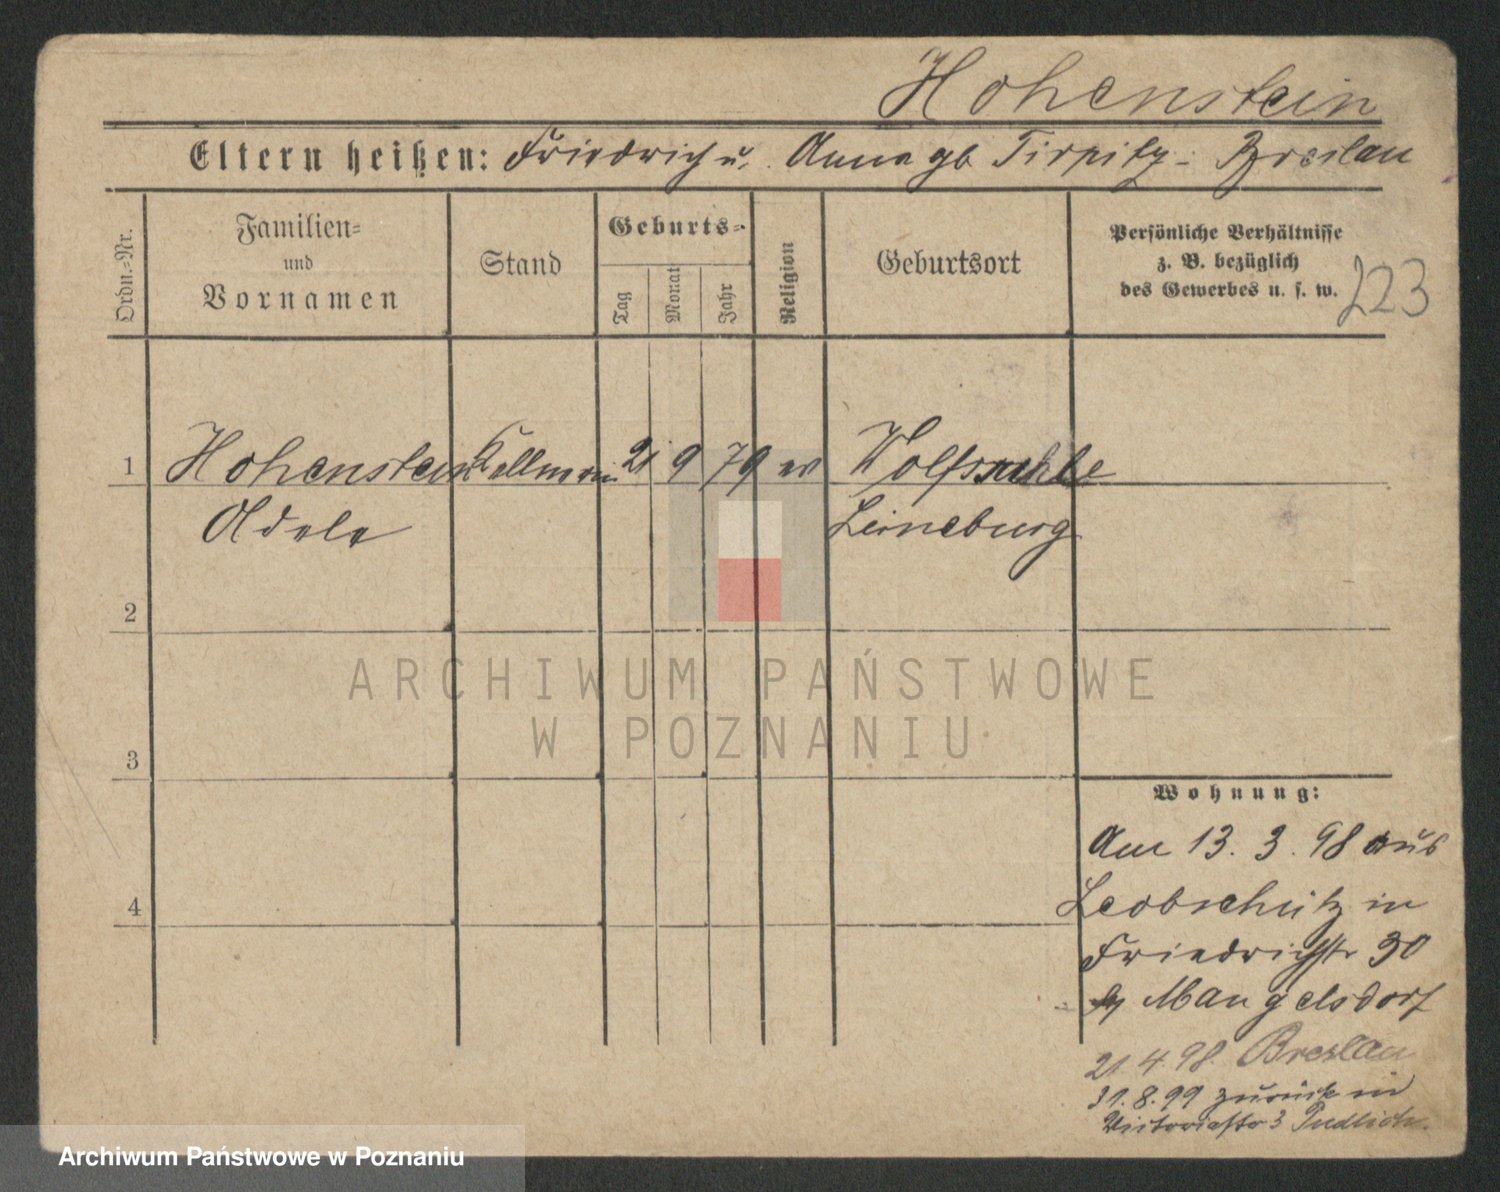 Hohenstein
Eltern heißen: Friedrich u. Anna gb Tirpitz - Breslau
Ordn.-Nr.
Familien-
und
Vornamen
Stand
Geburts-
Tag
Monat
Jahr
Religion
Geburtsort
Persönliche Verhältnisse
z. B. bezüglich
des Gewerbes u. s. w.
223
1 Hohenstein Kellnerin 21 9 79 ev
Adele
Lüneburg
2
3
4
Wohnung:
Am 13. 3. 98 aus
Leobschütz in
Friedrichstr 30
Mangelsdorf
21. 4. 98. Breslau
31. 8. 99 zurück in
Victoriastr 3
ARCHIWUM PAŃSTWOWE
W POZNANIU
Archiwum Państwowe w Poznaniu